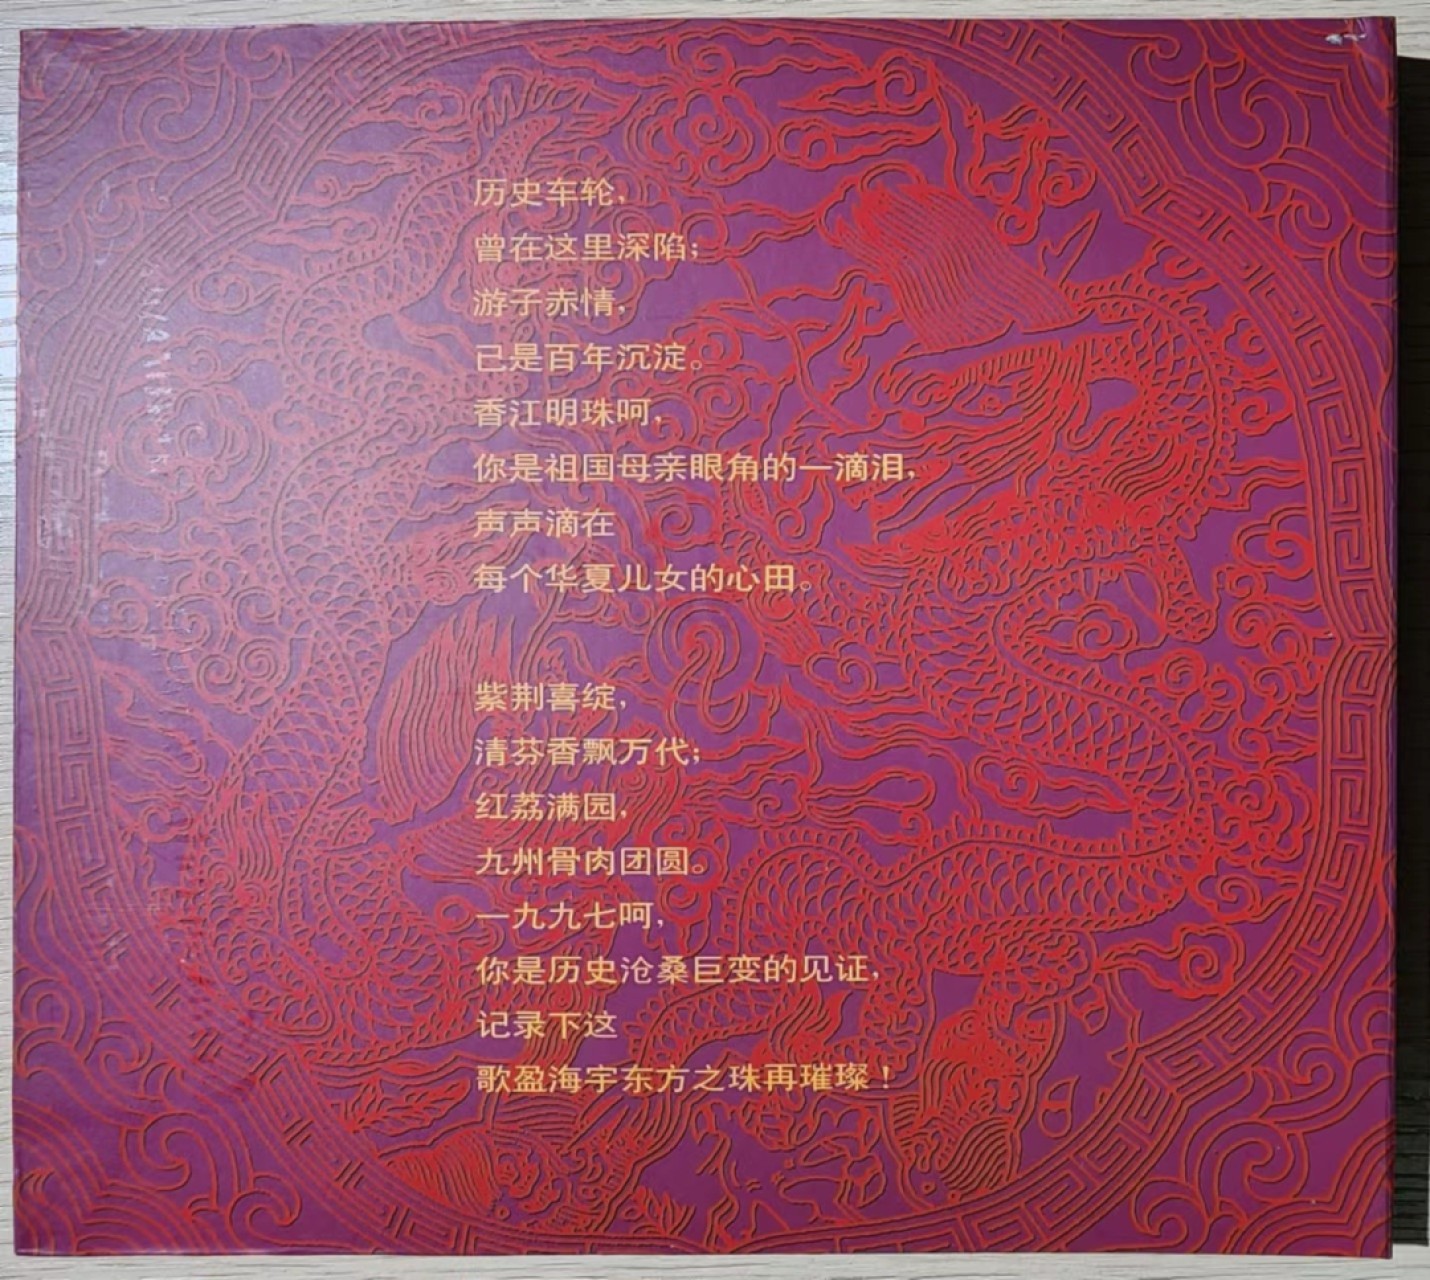 历史车轮，
曾在这里深陷；
游子赤情，
已是百年沉淀。
香江明珠呵，
你是祖国母亲眼角的一滴泪，
声声滴在
每个华夏儿女的心田。
紫荆喜绽，
清芬香飘万代；
红荔满园，
九州骨肉团圆。
一九九七呵，
你是历史沧桑巨变的见证，
记录下这
歌盈海宇东方之珠再璀璨！